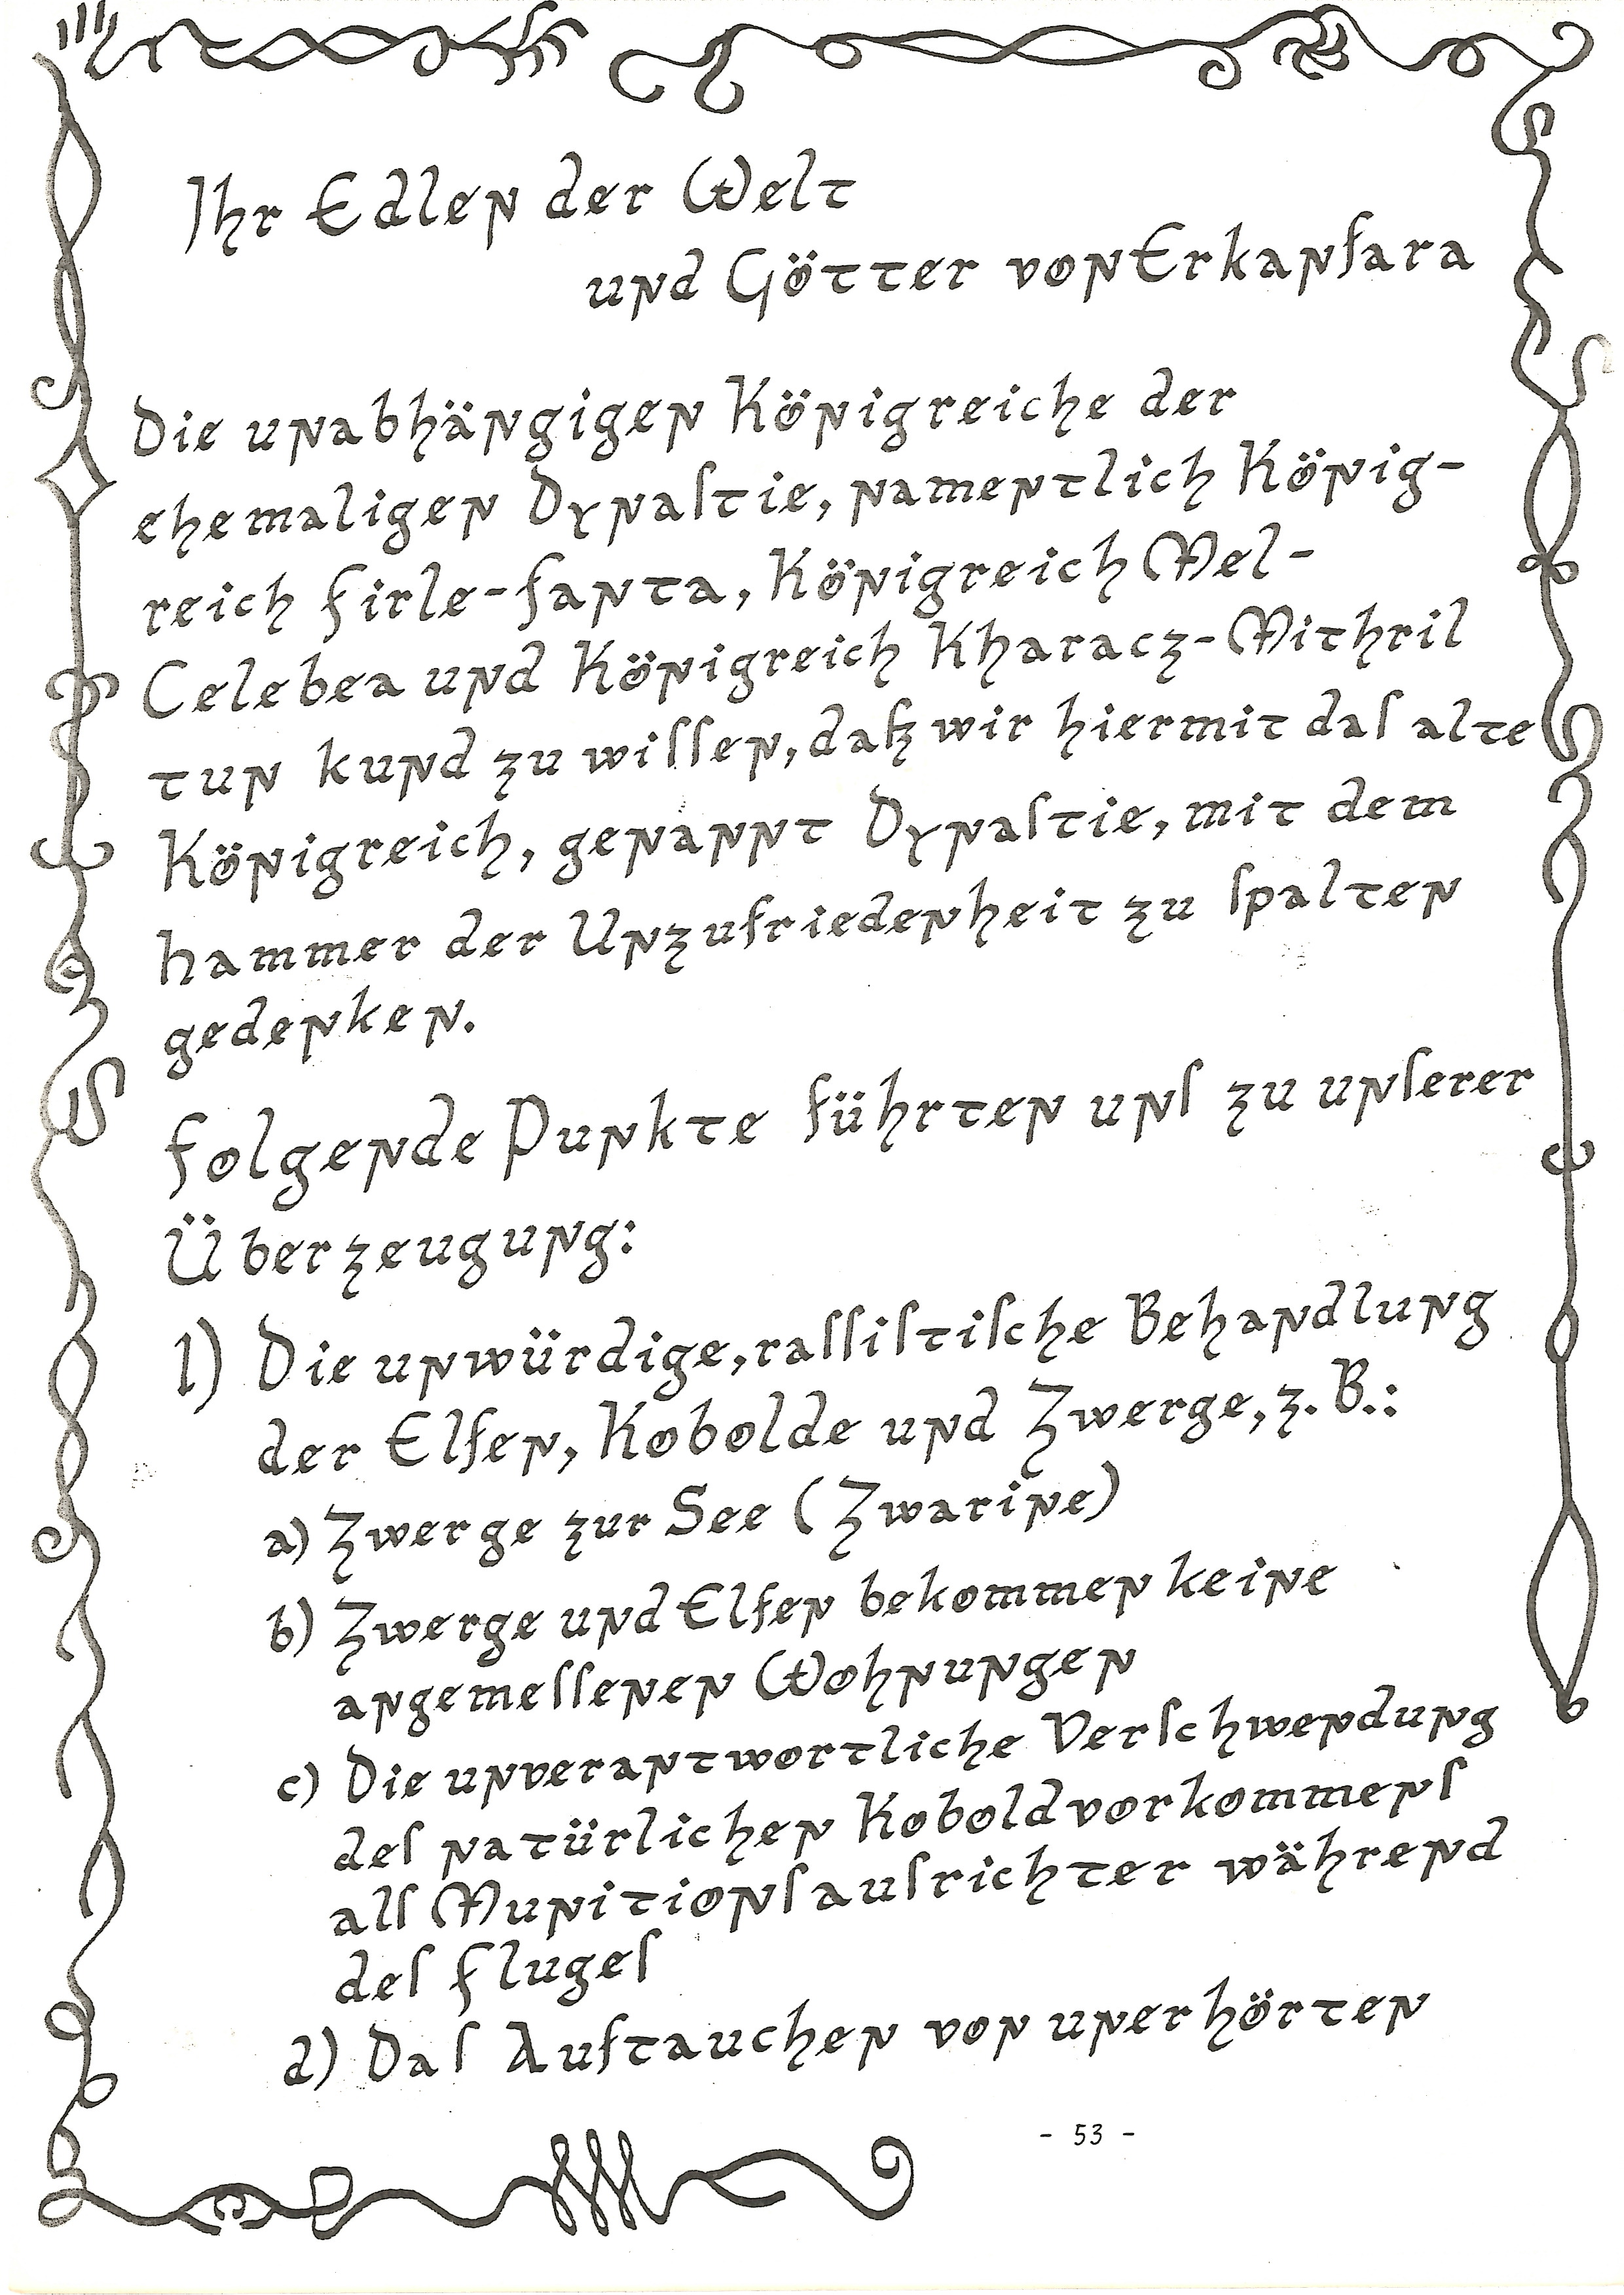 Ihr Edlen der Welt
und Götter von Erkansara
Die unabhängigen Königreiche der
ehemaligen Dynastie, namentlich König-
reich Firle-Fanta, Königreich Mel-
Celebea und Königreich Kharacz-Mithril
tun kund zu wissen, daß wir hiermit das alte
Königreich, genannt Dynastie, mit dem
Hammer der Unzufriedenheit zu spalten
gedenken.
Folgende Punkte führten uns zu unserer
Überzeugung:
1) Die unwürdige, rassistische Behandlung
der Elfen, Kobolde und Zwerge, z. B.:
a) Zwerge zur See (Zwarine)
b) Zwerge und Elfen bekommen keine
angemessenen Wohnungen
c) Die unverantwortliche Verschwendung
des natürlichen Koboldvorkommens
als Munitionsausrichter während
des Fluges
d) Das Auftauchen von unerhörten
- 53 -